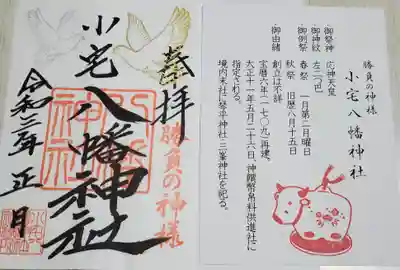 奉拝
勝負の神様
小宅八幡神社
令和三年正月
勝負の神様
小宅八幡神社
・御祭神 応神天皇
・御神紋 左三つ巴
・御例祭 春祭 一月第二日曜日
秋祭 旧暦八月十五日
・御由緒 創立は不詳
宝暦六年(一七〇九)再建。
大正十一年五月二十六日、神饌幣帛料供進社に
指定される。
境内末社に琴平神社、三峯神社を祀る。